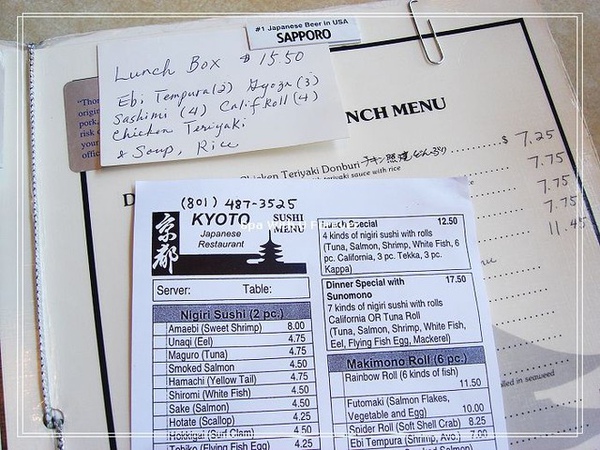 #1 Japanese Beer in USA
SAPPORO
Lunch Box $15.50
Ebi Tempura(2) Gyoza (3)
Sashimi (4) Calif Roll (4)
Chicken Teriyaki
& Soup, Rice
NCH MENU
$ 7.25
Chicken Teriyaki Donburi チキン照焼どんぶり
7.75
teriyaki sauce with rice
7.75
7.75
11.45
rolled in seaweed
(801) 487-3525
京都
KYOTO
Japanese
Restaurant
SUSHI
MENU
Server: Table:
Nigiri Sushi (2 pc.)
Amaebi (Sweet Shrimp) 8.00
Unaqi (Eel) 4.75
Maguro (Tuna) 4.75
Smoked Salmon 4.50
Hamachi (Yellow Tail) 4.75
Shiromi (White Fish) 4.50
Sake (Salmon) 4.50
Hotate (Scallop) 4.25
Hokkigai (Surf Clam) 4.50
Tobiko (Flying Fish Egg) 4.25
Lunch Special 12.50
4 kinds of nigiri sushi with rolls
(Tuna, Salmon, Shrimp, White Fish, 6
pc. California, 3 pc. Tekka, 3 pc.
Kappa)
Dinner Special with 17.50
Sunomono
7 kinds of nigiri sushi with rolls
California OR Tuna Roll
(Tuna, Salmon, Shrimp, White Fish,
Eel, Flying Fish Egg, Mackerel)
Makimono Roll (6 pc.)
Rainbow Roll (6 kinds of fish)
11.50
Futomaki (Salmon Flakes,
Vegetable and Egg) 10.00
Spider Roll (Soft Shell Crab) 8.25
Ebi Tempura (Shrimp, Avo.) 7.00